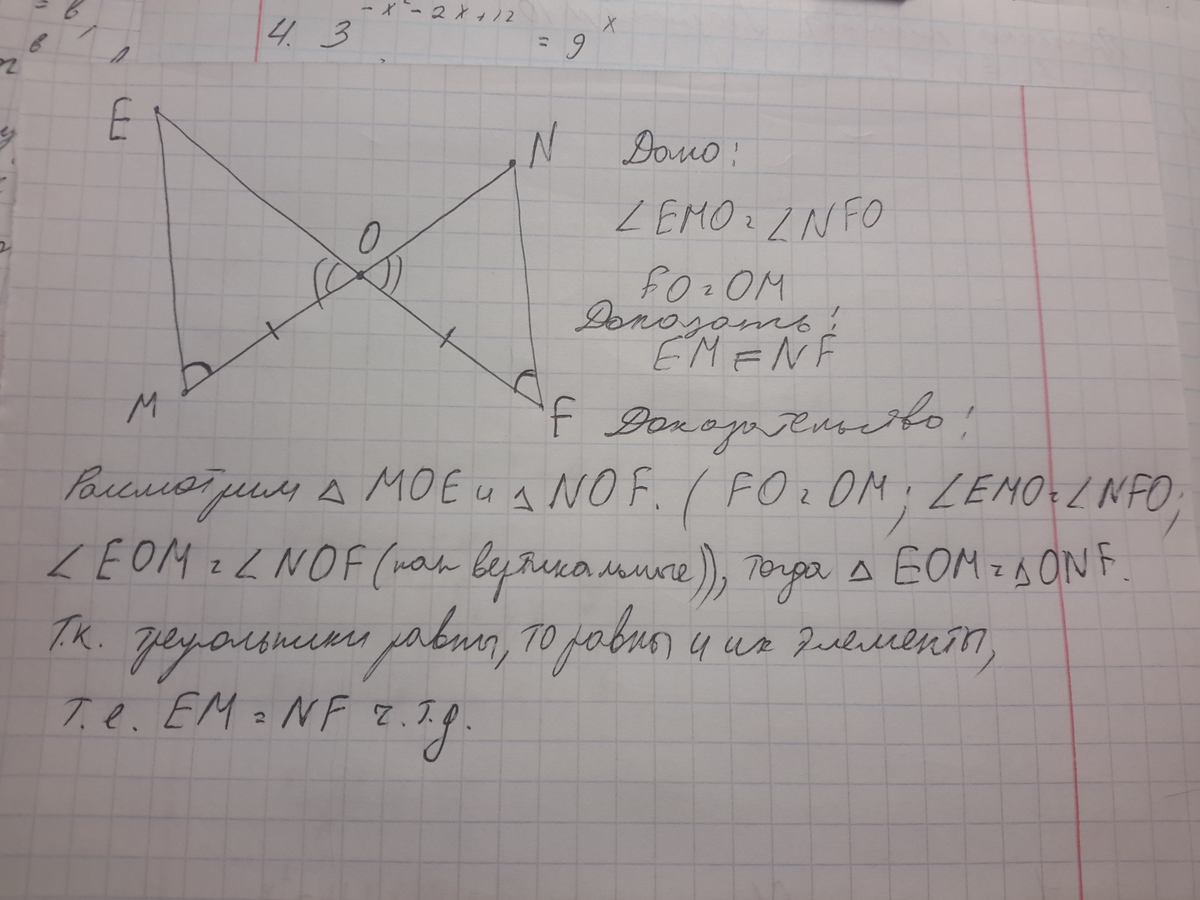 = в,
в
4. 3^(-x²-2x+12) = 9^x
E
N
O
M
F
Дано:
∠EMO = ∠NFO
FO = OM
Доказать:
EM = NF
Доказательство:
Рассмотрим △ MOE и △ NOF. (FO = OM; ∠EMO = ∠NFO;
∠EOM = ∠NOF (как вертикальные)), тогда △ EOM = △ONF.
Т.к. треугольники равны, то равны и их элементы,
т.е. EM = NF ч.т.д.